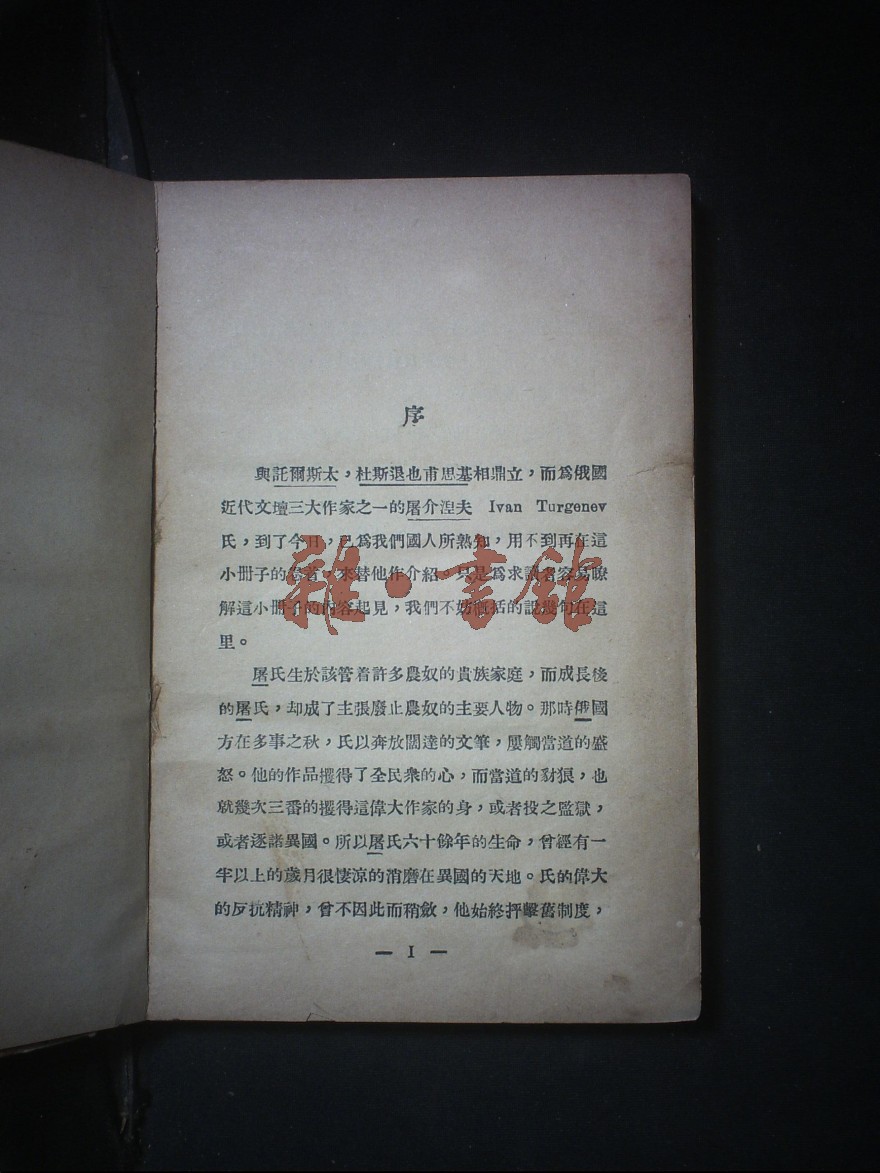 序
與託爾斯太，杜斯退也甫思基相鼎立，而爲俄國
近代文壇三大作家之一的屠介湼夫 Ivan Turgenev
氏，到了今日，已爲我們國人所熟知，用不到再在這
小册子的卷首，來替他作介紹。只是爲求讀者容易瞭
解這小册子的內容起見，我們不妨概括的記幾句在這
里。
屠氏生於該管着許多農奴的貴族家庭，而成長後
的屠氏，却成了主張廢止農奴的主要人物。那時俄國
方在多事之秋，氏以奔放闊達的文筆，屢觸當道的盛
怒。他的作品攫得了全民衆的心，而當道的豺狼，也
就幾次三番的攫得這偉大作家的身，或者投之監獄，
或者逐諸異國。所以屠氏六十餘年的生命，曾經有一
半以上的歲月很悽涼的消磨在異國的天地。氏的偉大
的反抗精神，曾不因此而稍斂，他始終抨擊舊制度，
— I —
雜·書館